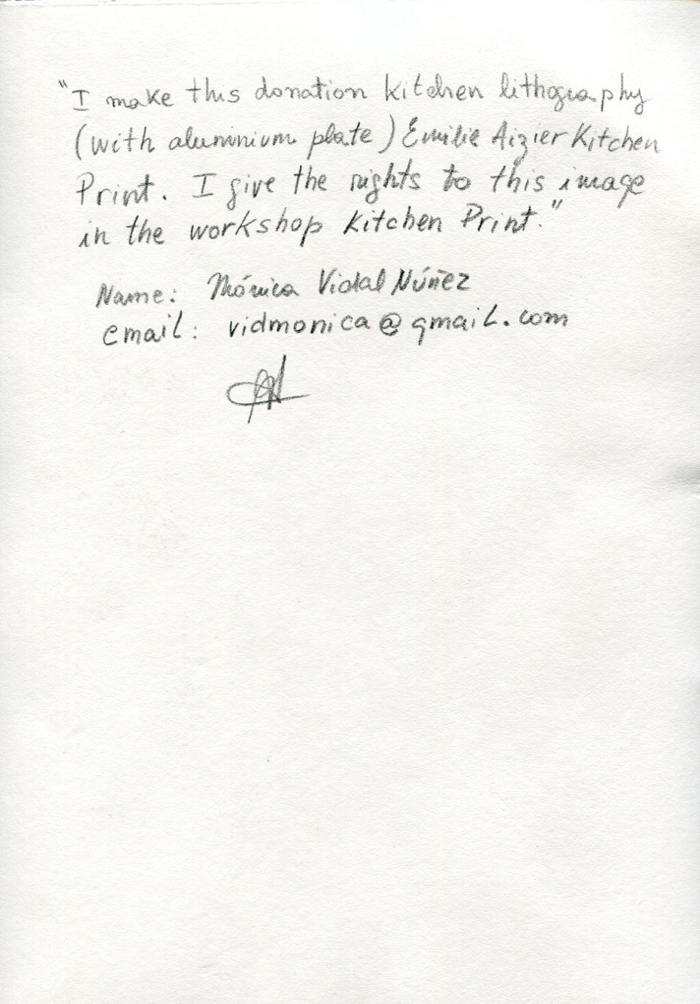 "I make this donation kitchen lithography
(with aluminium plate) Emilie Aizier Kitchen
Print. I give the rights to this image
in the workshop Kitchen Print."
Name: Mónica Vidal Núñez
email: vidmonica@gmail.com